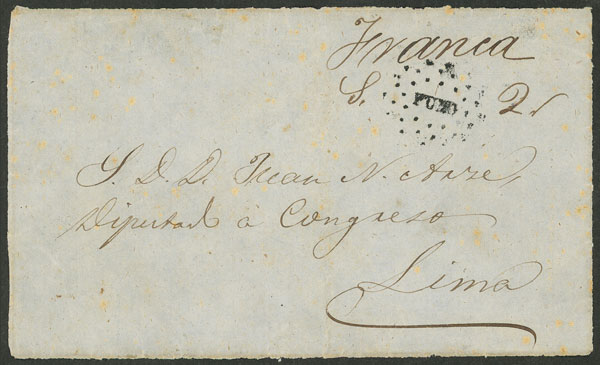 Franca
S. 2
PUNO
S. D. D. Juan N.
Diputado a Congreso
Lima